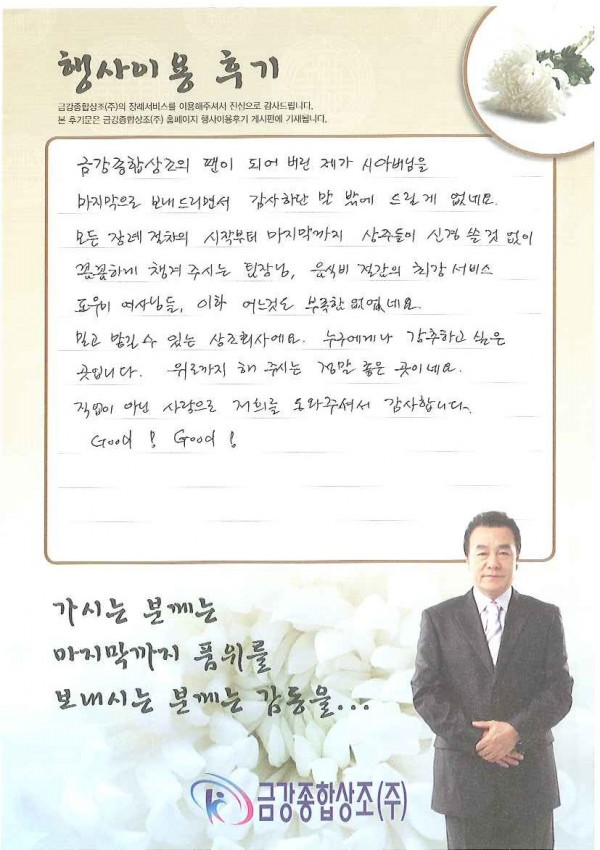 행사이용 후기
금강종합상조(주)의 장례서비스를 이용해주셔서 진심으로 감사드립니다.
본 후기문은 금강종합상조(주) 홈페이지 행사이용후기 게시판에 기재됩니다.
금강종합상조의 팬이 되어 버린 제가 시아버님을
마지막으로 보내드리면서 감사하단 말 밖에 드릴게 없네요.
모든 장례 절차의 시작부터 마지막까지 상주들이 신경 쓸 것 없이
꼼꼼하게 챙겨 주시는 팀장님, 음식비 절감의 최강 서비스
도우미 여사님들, 이하 어느것도 부족함 없었네요.
믿고 맡길 수 있는 상조회사에요. 누구에게나 강추하고 싶은
곳입니다. 위로까지 해 주시는 정말 좋은 곳이네요.
직업이 아닌 사랑으로 저희를 도와주셔서 감사합니다.
Good ! Good !
가시는 분께는
마지막까지 품위를
보내시는 분께는 감동을...
금강종합상조(주)